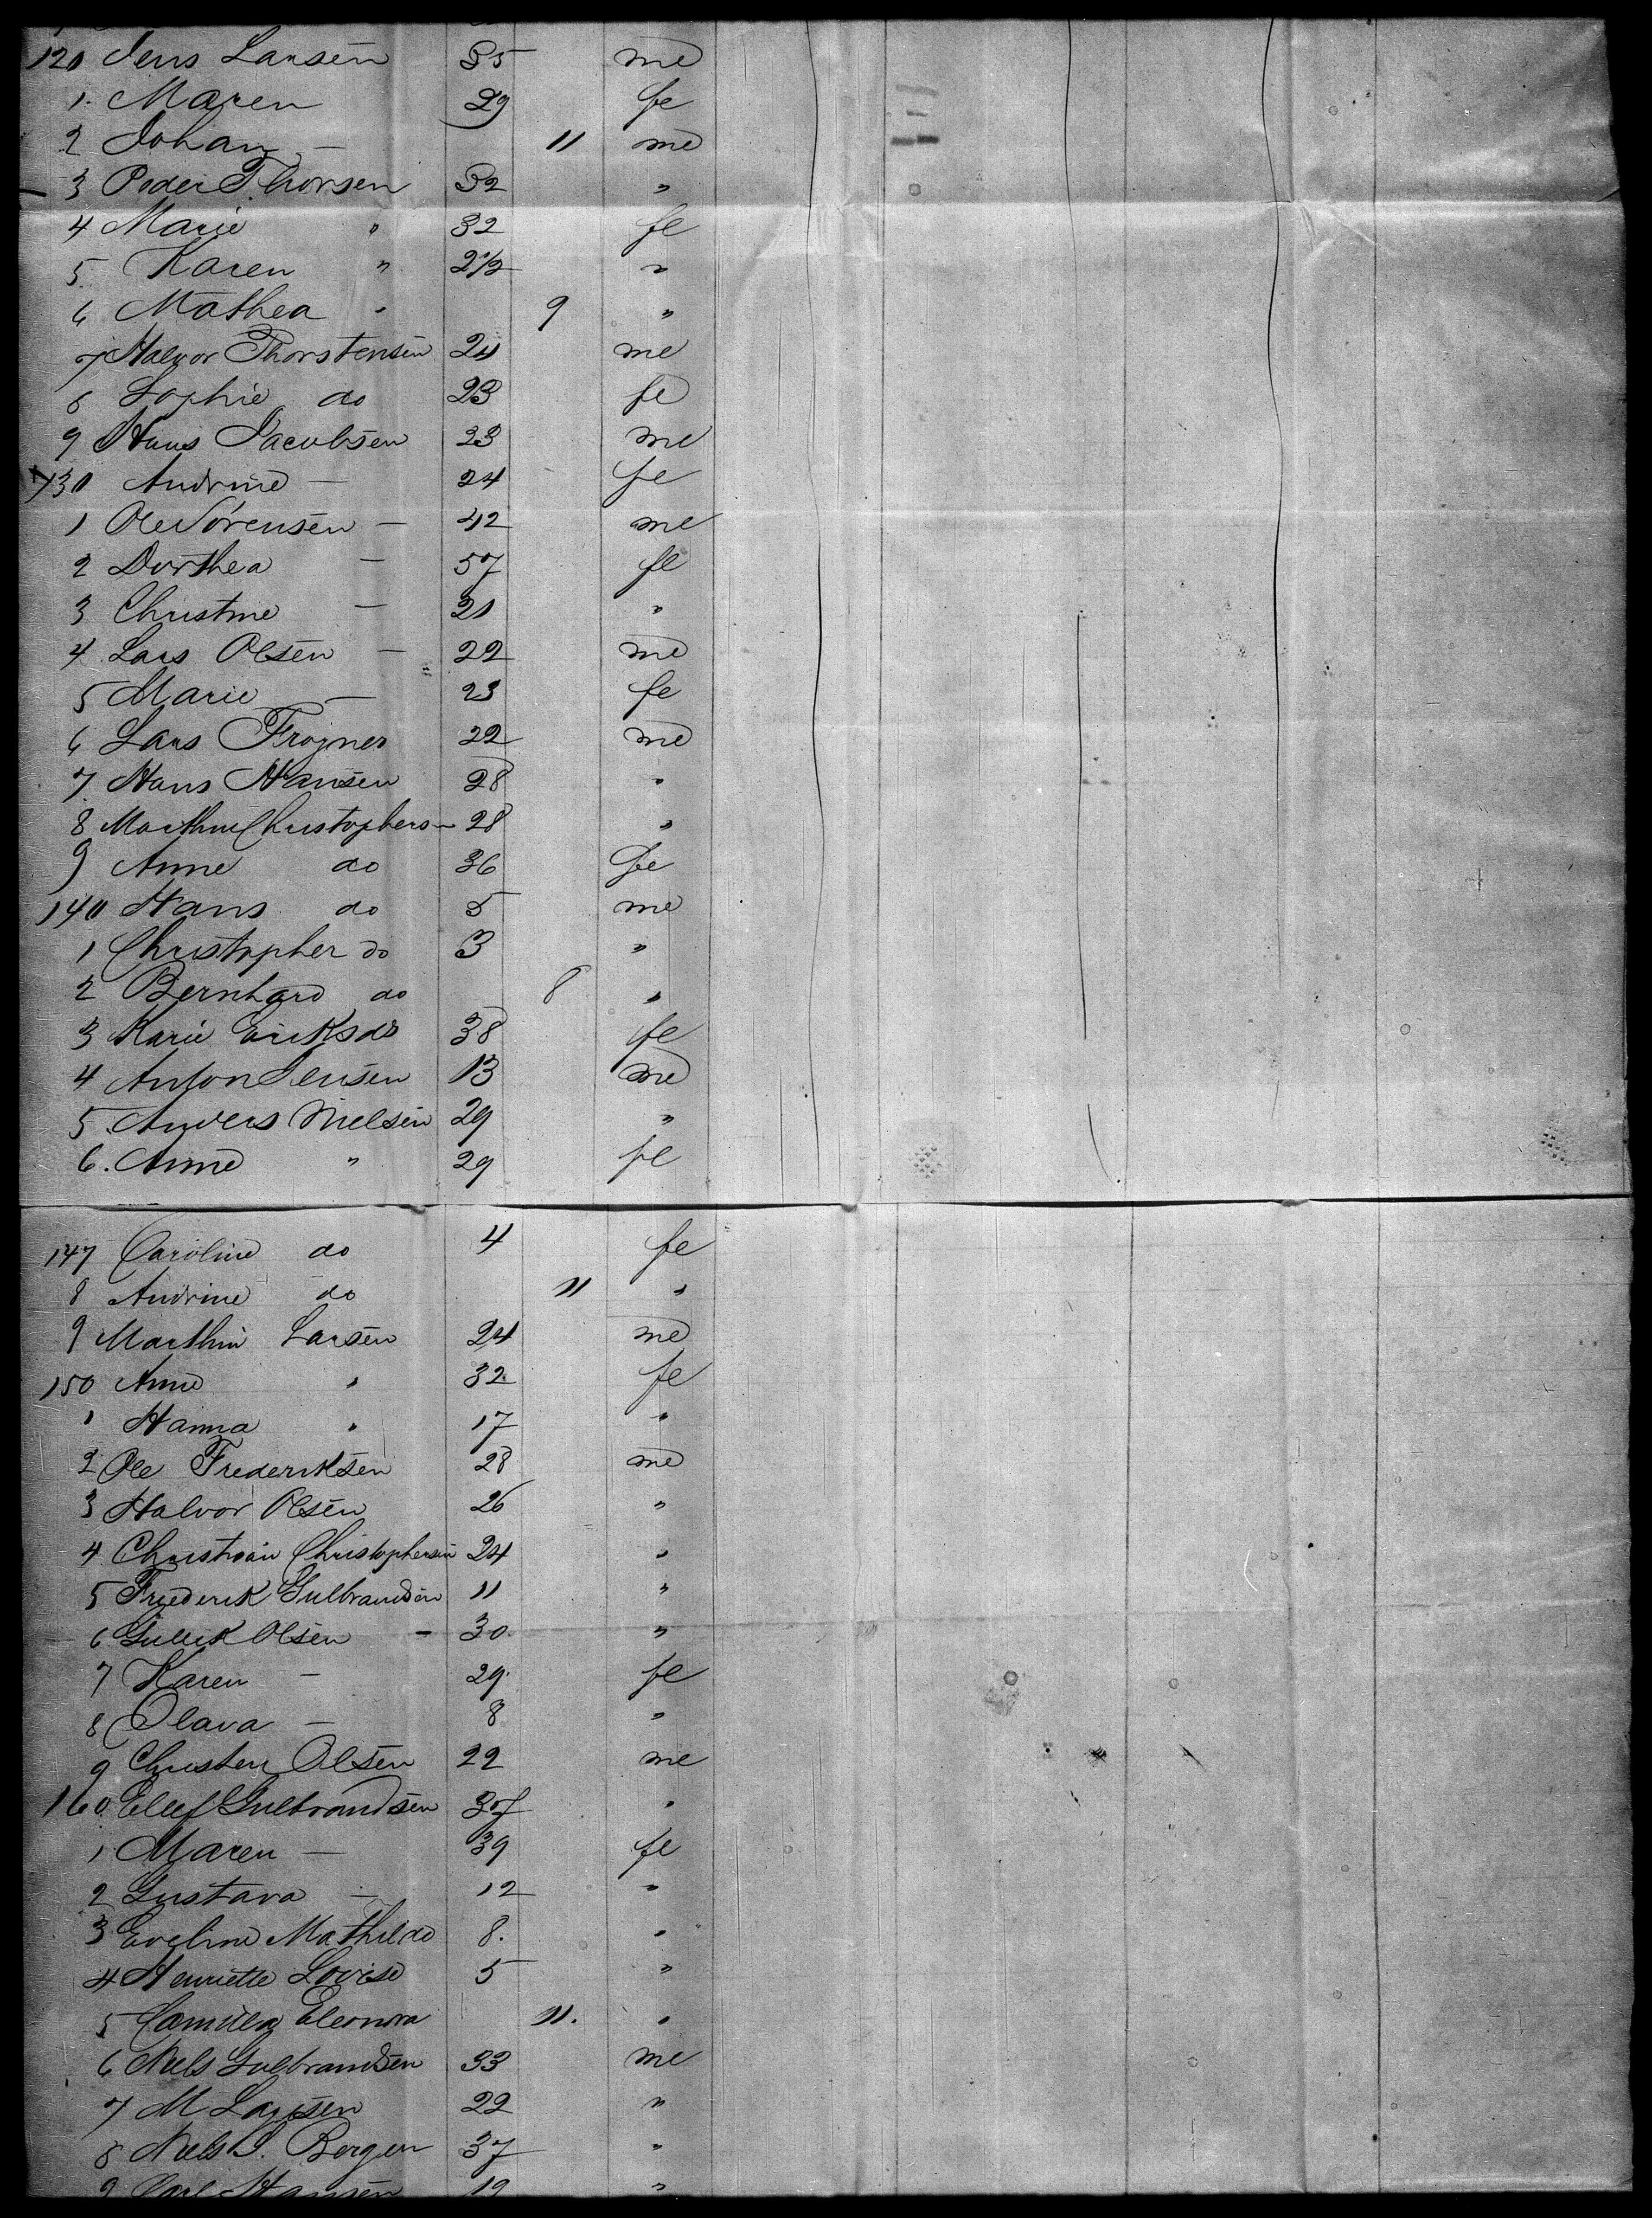 120 Jens Larsen 35 me
1. Maren 29 fe
2 Johan — 11 me
3 Peder Thorsen 32 "
4 Marie " 32 fe
5 Karen " 2 1/2 "
6 Mathea " 9 "
7 Halvor Thorstensen 24 me
8 Sophie do 23 fe
9 Hans Jacobsen 23 me
130 Andrine — 24 fe
1 Ole Sörensen — 42 me
2 Dorthea — 57 fe
3 Christine — 21 "
4 Lars Olsen — 22 me
5 Marie — 23 fe
6 Lars Frogner 22 me
7 Hans Hansen 28 "
8 Marthin Christophers— 28 "
9 Anne do 36 fe
140 Hans do 5 me
1 Christopher do 3 "
2 Bernhard do 8 "
3 Karie Eriksdr 38 fe
4 Anton Jensen 13 me
5. Anders Nielsen 29 "
6. Anne " 29 fe
147 Caroline do 4 fe
8 Andrine do 11 "
9 Marthin Larsen 24 me
150 Anne " 32 fe
1 Hanna " 17 "
2 Ole Frederiksen 28 me
3 Halvor Olsen 26 "
4 Christian Christophersen 24 "
5 Frederik Gulbrandsen 11 "
6 Gullik Olsen — 30. "
7 Karen — 29. fe
8 Olava — 8 "
9 Christen Olsen 22 me
160 Ellef Gulbrandsen 37 "
1 Maren — 39 fe
2 Gustava — 12 "
3 Eveline Mathilde 8. "
4 Henriette Lovise 5 "
5 Camilla Eleonora 11. "
6 Niels Gulbrandsen 33 me
7 M 22 "
8 Niels J. Bergen 37 "
9 Carl Hansen 19 "